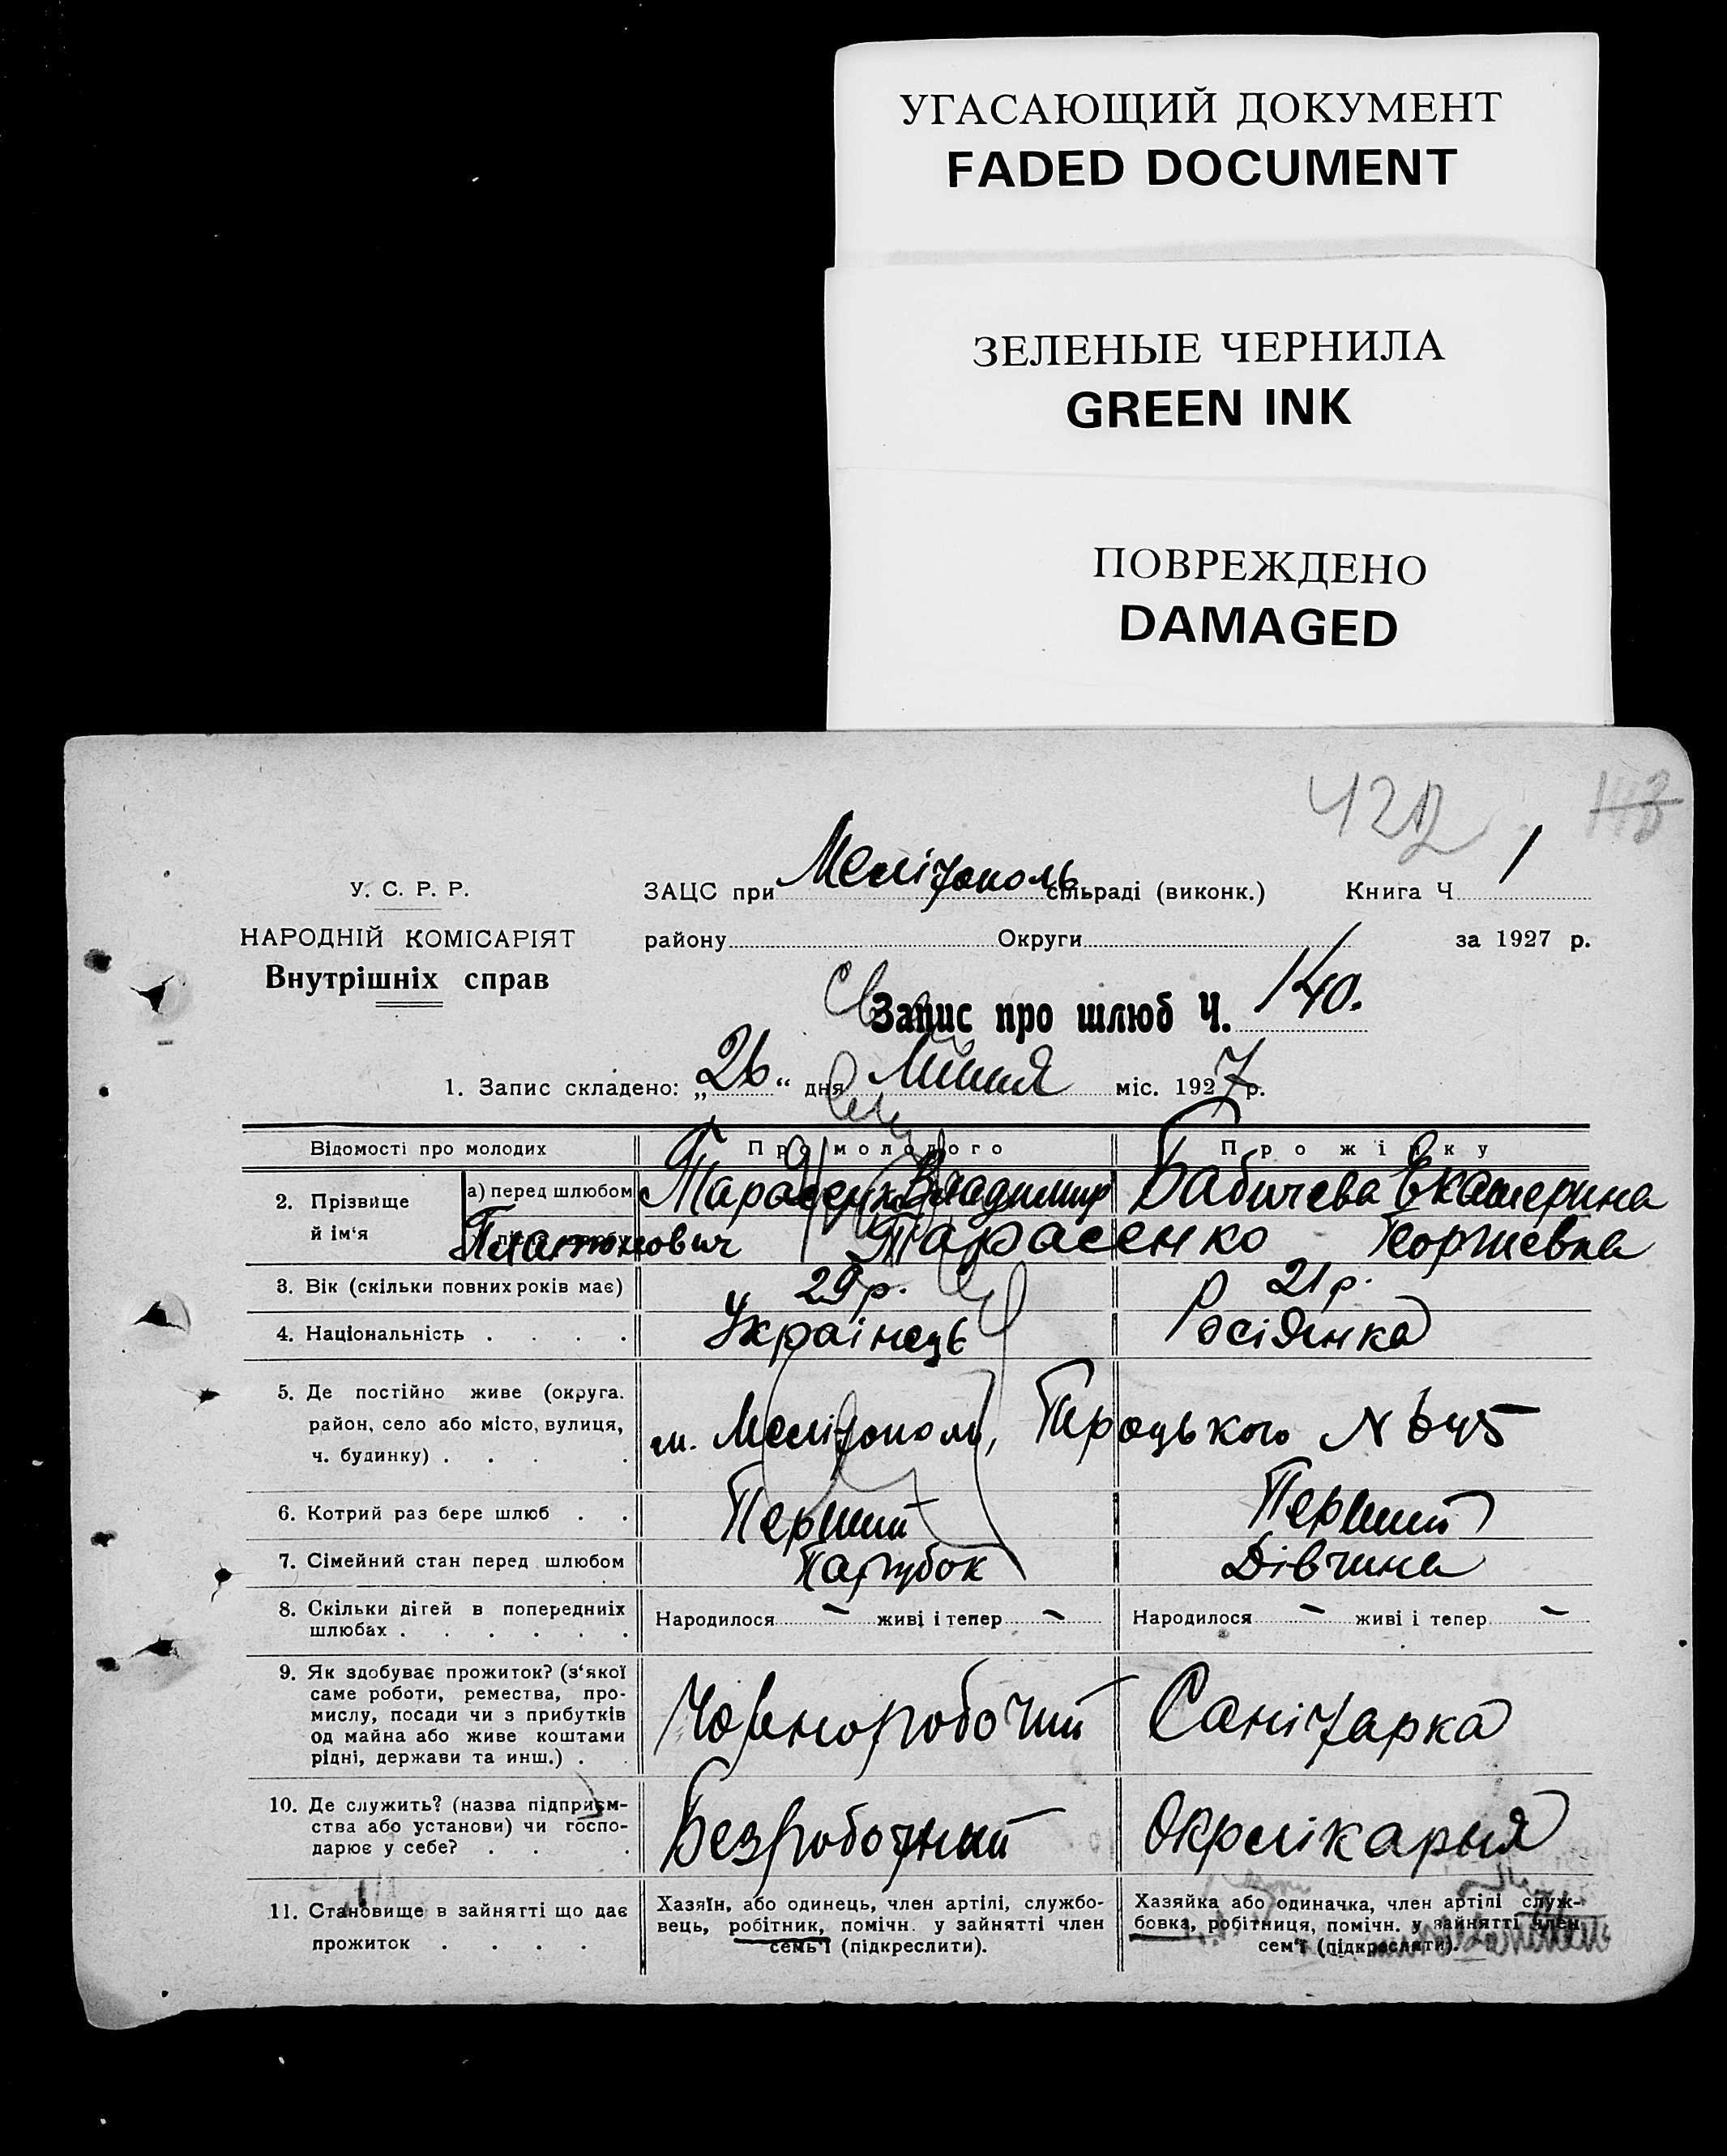 УГАСАЮЩИЙ ДОКУМЕНТ
FADED DOCUMENT
ЗЕЛЕНЫЕ ЧЕРНИЛА
GREEN INK
ПОВРЕЖДЕНО
DAMAGED
422 143
У. С. Р. Р.
НАРОДНІЙ КОМІСАРІЯТ
Внутрішніх справ
ЗАЦС при Мелітополь сільраді (виконк.) Книга Ч. 1
району Округи за 1927 р.
Запис про шлюб Ч. 140.
1. Запис складено: „26“ дня Липня міс. 1927 р.
Відомості про молодих Про молодого Про жінку
2. Прізвище й ім‘я
а) перед шлюбом Тарасенко Владимир Бабичева Екатерина
Платонович Тарасенко Георгиевна
3. Вік (скільки повних років має) 29 р. 21 р.
4. Національність . . . . Українець Росіянка
5. Де постійно живе (округа.
район, село або місто, вулиця,
ч. будинку) . . . .
м. Мелітополь, Троцького №
6. Котрий раз бере шлюб . . Перший Перший
7. Сімейний стан перед шлюбом Парубок Дівчина
8. Скільки дітей в попередніх
шлюбах . . . . . .
Народилося – живі і тепер – Народилося – живі і тепер –
9. Як здобуває прожиток? (з‘якої
саме роботи, ремества, про-
мислу, посади чи з прибутків
од майна або живе коштами
рідні, держави та инш.) . .
Чорноробочий Санітарка
10. Де служить? (назва підприєм-
ства або установи) чи госпо-
дарює у себе? . . .
Безработный Окрлікарня
11. Становище в зайнятті що дає
прожиток . . . .
Хазяїн, або одинець, член артілі, службо-
вець, робітник, помічн. у зайнятті член
семь‘ї (підкреслити).
Хазяйка або одиначка, член артілі служ-
бовка, робітниця, помічн. у зайнятті член
сем‘ї (підкреслити).